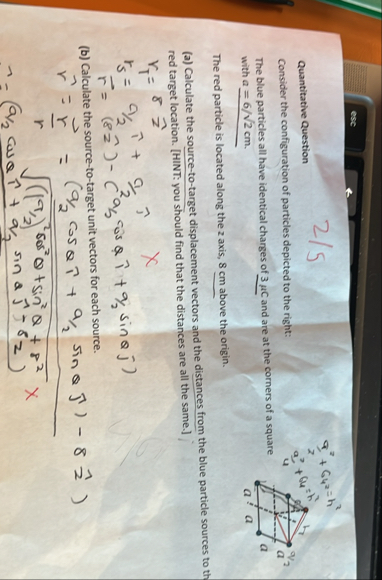 esc
Quantitative Question
2/5
Consider the configuration of particles depicted to the right:
The blue particles all have identical charges of 3 μC and are at the corners of a square
with a = 6/√2 cm.
The red particle is located along the z axis, 8 cm above the origin.
(a) Calculate the source-to-target displacement vectors and the distances from the blue particle sources to th
red target location. [HINT: you should find that the distances are all the same.]
a²/2 + 64² = h²
a²/4 + 64 = h²
h
a/2
a
a
a
a
r_T = 8 ẑ
r_s = a/2 î + a/2 ĵ
r = (8ẑ) - (a/2 cos Q î + a/2 sin Q ĵ)
X
(b) Calculate the source-to-target unit vectors for each source.
r̂ = r/r = (a/2 cos Q î + a/2 sin Q ĵ) - 8 ẑ)
√((a/2)² cos² Q + sin² Q + 8²
X
(a/2 cos Q î + a/2 sin Q ĵ - 8ẑ)